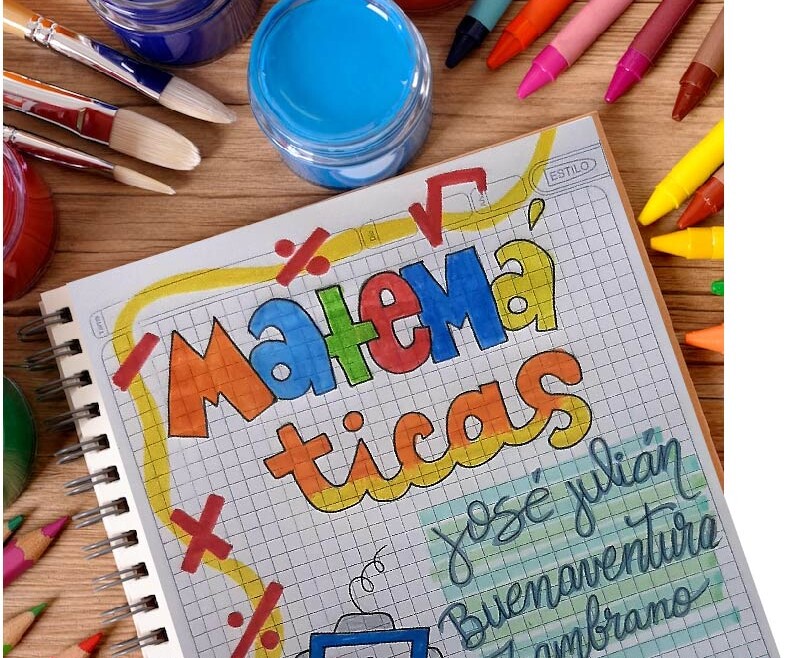 ESTILO
Matemá
ticas
josé julián
Buenaventura
Zambrano